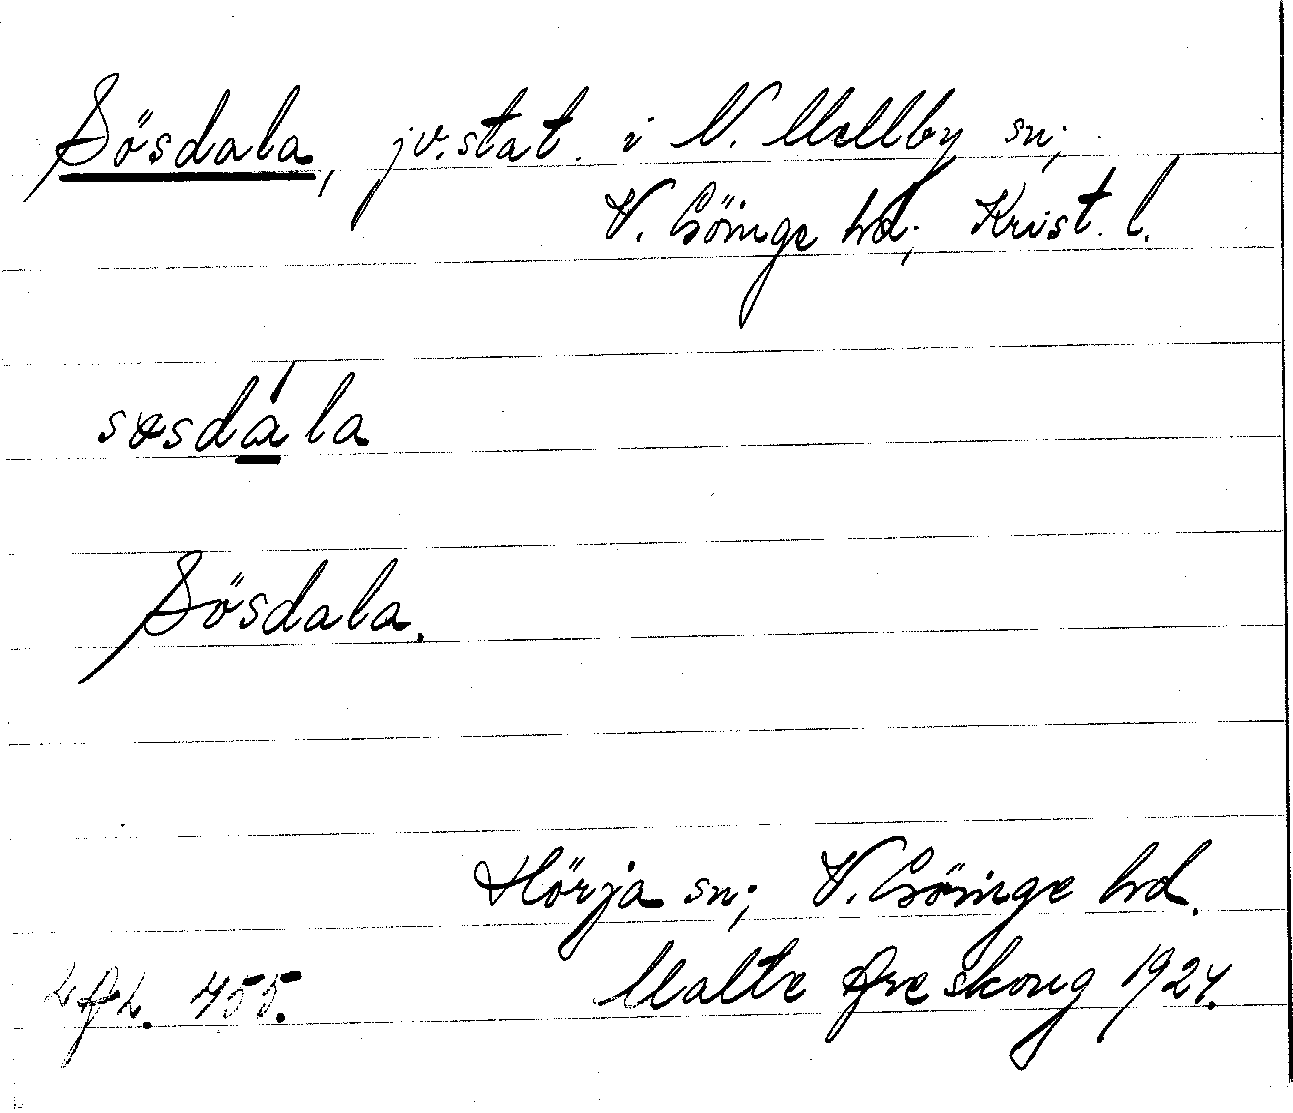 Sösdala, jv.stat. i N. Mellby sn;
V. Göinge hd; Krist. l.
søsdála
Sösdala.
Hörja sn; V. Göinge hd.
Malte Areskoug 1924.
455.